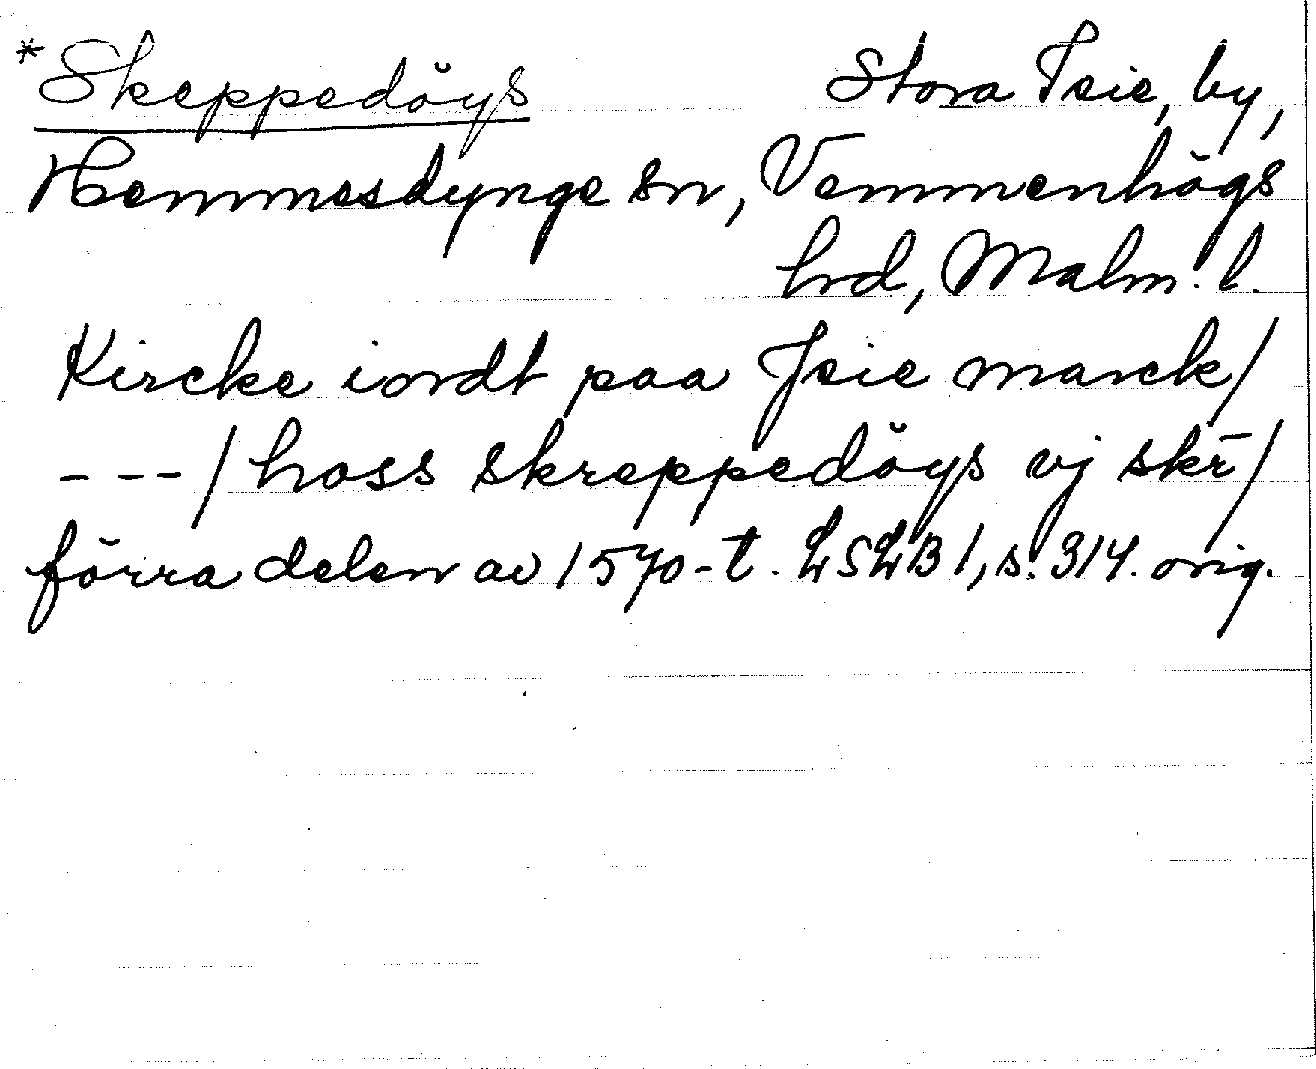 *Skeppedöys Stora Isie, by,
Hemmesdynge sn, Vemmenhögs
hrd, Malm. l.
Kircke iordt paa Jsie marck/
---/hoss skreppedöys vj skr̄/
förra delen av 1570-t. LSLB 1, s. 314. orig.